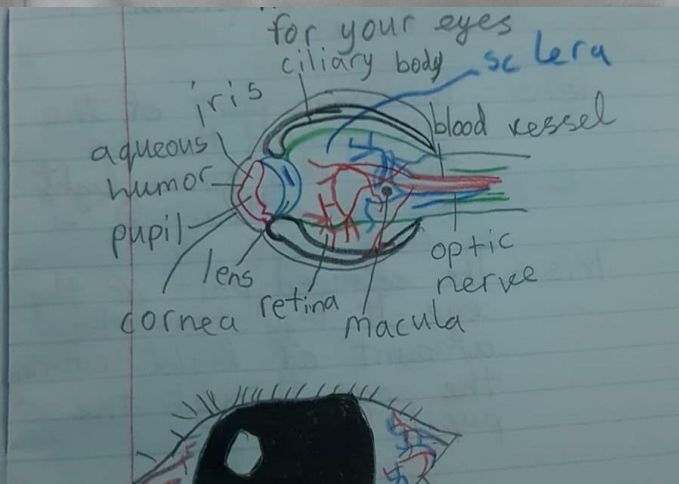 for your eyes
ciliary body
sclera
iris
blood vessel
aqueous
humor
pupil
lens
optic
nerve
retina
macula
cornea